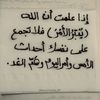 إذا علمت أن الله
(يُدَبِّرُ الأَمْرَ) فلا تجمع
على نفسك أحداث
الأمس وأمر اليوم وهمّ الغد.